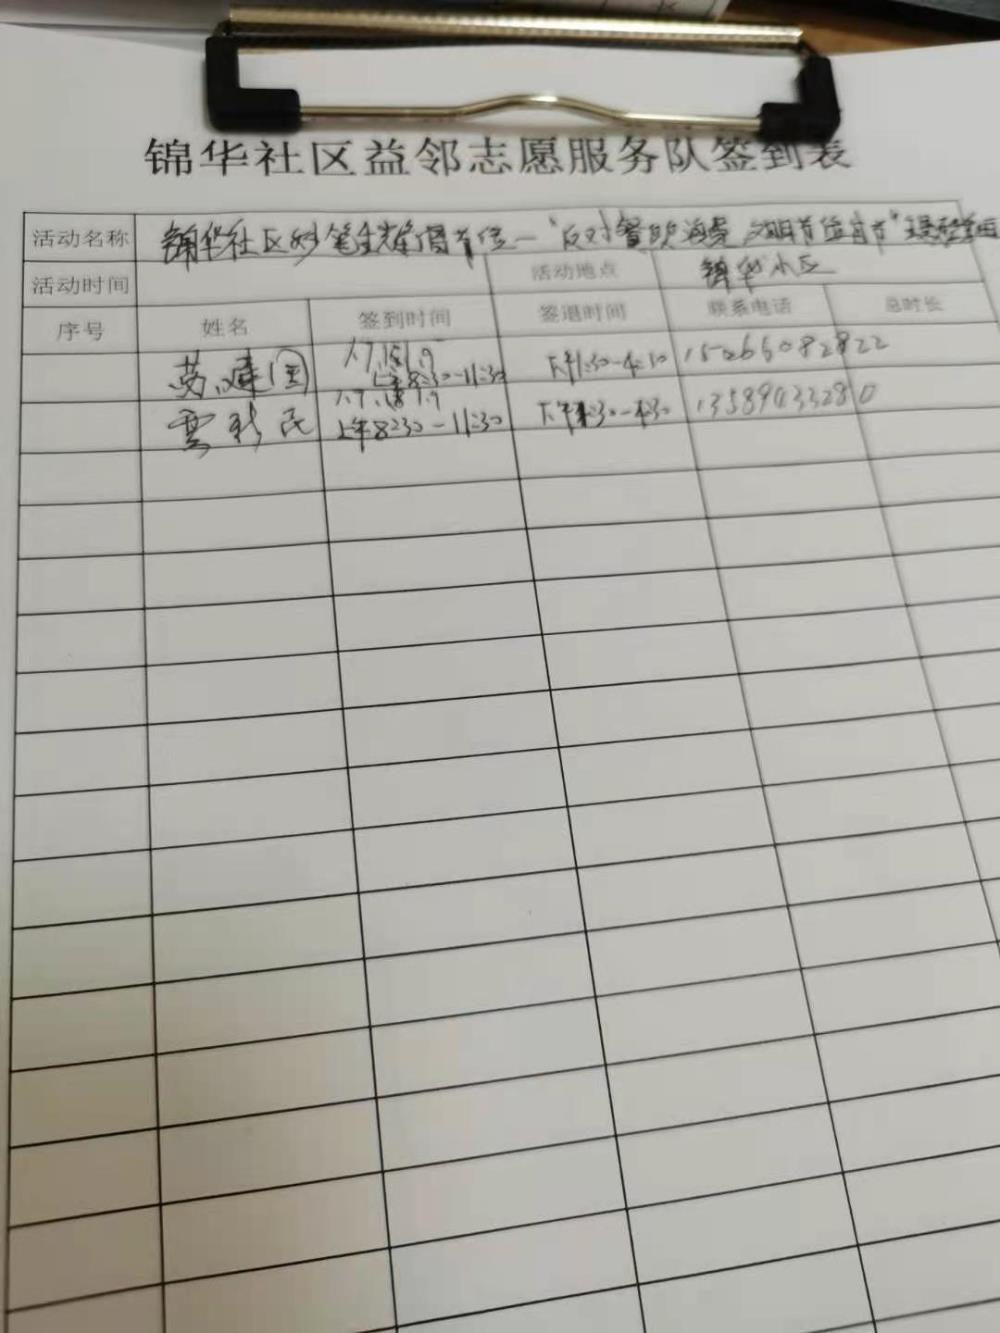 锦华社区益邻志愿服务队签到表
活动名称 锦华社区妙笔生辉 一"反对餐饮浪费 文明 "
活动时间 活动地点 锦华小区
序号 姓名 签到时间 签退时间 联系电话 总时长
建国 上午8:30-11:30 下午1:30-4:30 15266082822
新民 上午8:30-11:30 下午1:30-4:30 13589433280